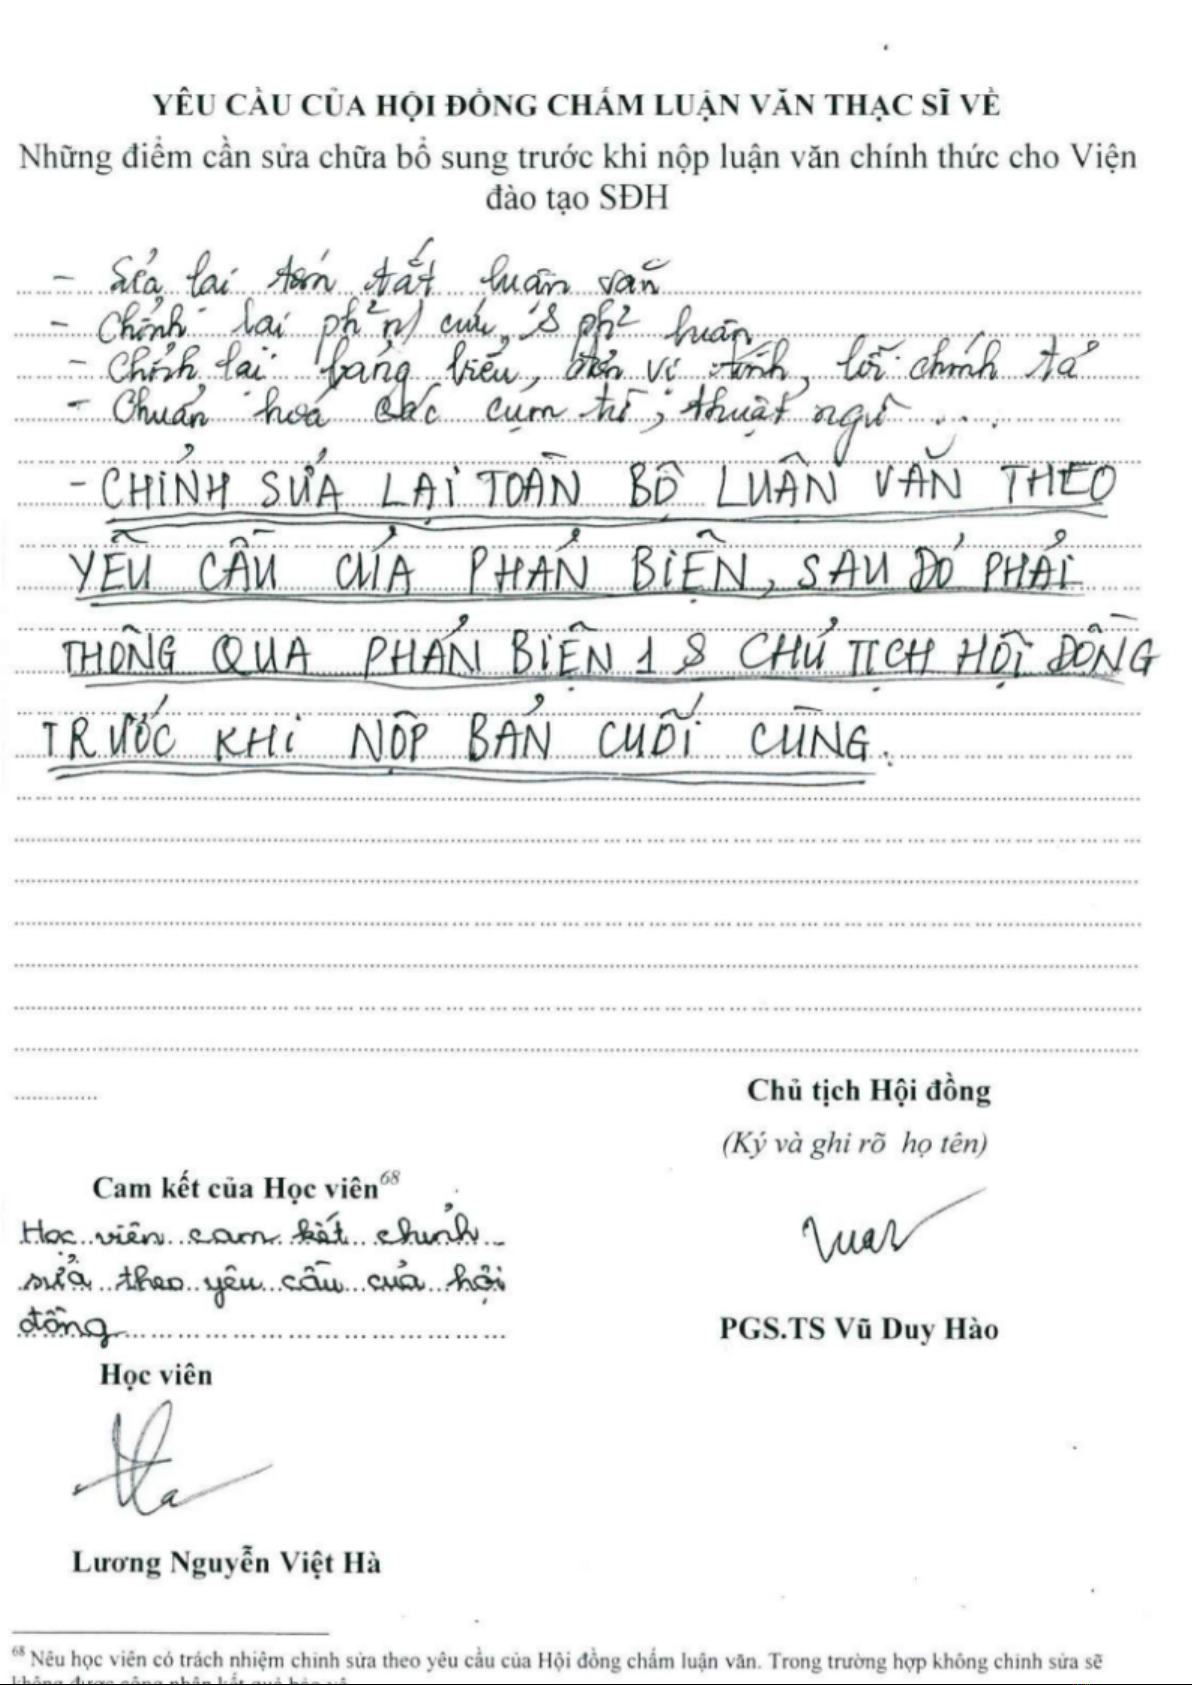 YÊU CẦU CỦA HỘI ĐỒNG CHẤM LUẬN VĂN THẠC SĨ VỀ
Những điểm cần sửa chữa bổ sung trước khi nộp luận văn chính thức cho Viện
đào tạo SĐH
- Sửa lại tóm tắt luận văn
- Chỉnh lại ph² n/cứu, & ph² luận
- Chỉnh lại bảng biểu, đơn vị tính, lỗi chính tả
- Chuẩn hoá các cụm từ, thuật ngữ ...
- CHỈNH SỬA LẠI TOÀN BỘ LUẬN VĂN THEO
YÊU CẦU CỦA PHẢN BIỆN, SAU ĐÓ PHẢI
THÔNG QUA PHẢN BIỆN 1 & CHỦ TỊCH HỘI ĐỒNG
TRƯỚC KHI NỘP BẢN CUỐI CÙNG.
Chủ tịch Hội đồng
(Ký và ghi rõ họ tên)
Cam kết của Học viên68
Học viên cam kết chỉnh
sửa theo yêu cầu của hội
đồng
PGS.TS Vũ Duy Hào
Học viên
Hà
Lương Nguyễn Việt Hà
68 Nêu học viên có trách nhiệm chỉnh sửa theo yêu cầu của Hội đồng chấm luận văn. Trong trường hợp không chỉnh sửa sẽ
không được công nhận kết quả bảo vệ